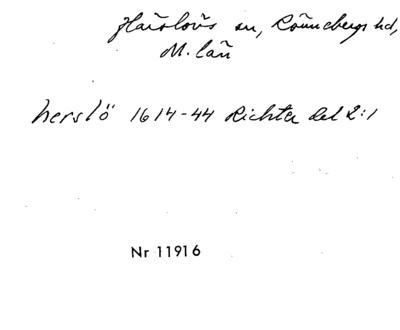 Härslövs sn, Rönnebergs hd,
M. län
herslö 1614-44 Richter del 2:1
Nr 11916